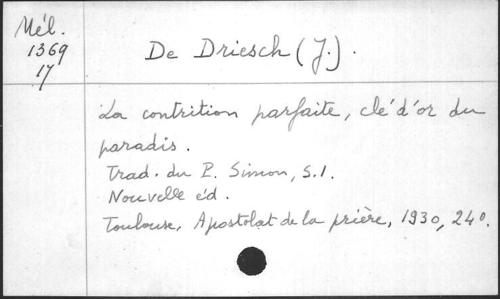 Mél.
1369
17
De Driesch (J.).
La contrition parfaite, clé d'or du
paradis.
Trad. du P. Simon, S.I.
Nouvelle éd.
Toulouse, Apostolat de la prière, 1930, 24°.